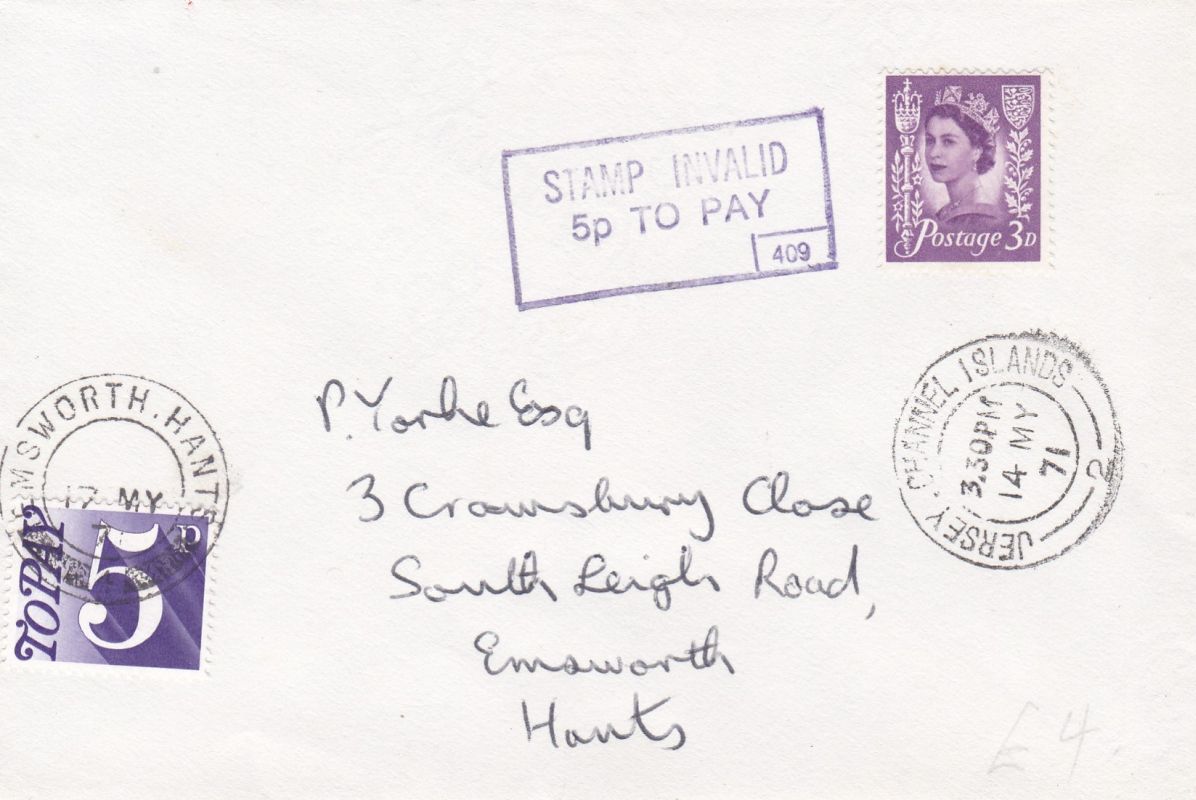 STAMP INVALID
5p TO PAY
409
Postage 3D
JERSEY. CHANNEL ISLANDS
3.30PM
14 MY
71
2
EMSWORTH. HANTS
17 MY
TO PAY
5P
P. Yorke Esq
3 Crowsbury Close
South Leigh Road,
Emsworth
Hants
£4.